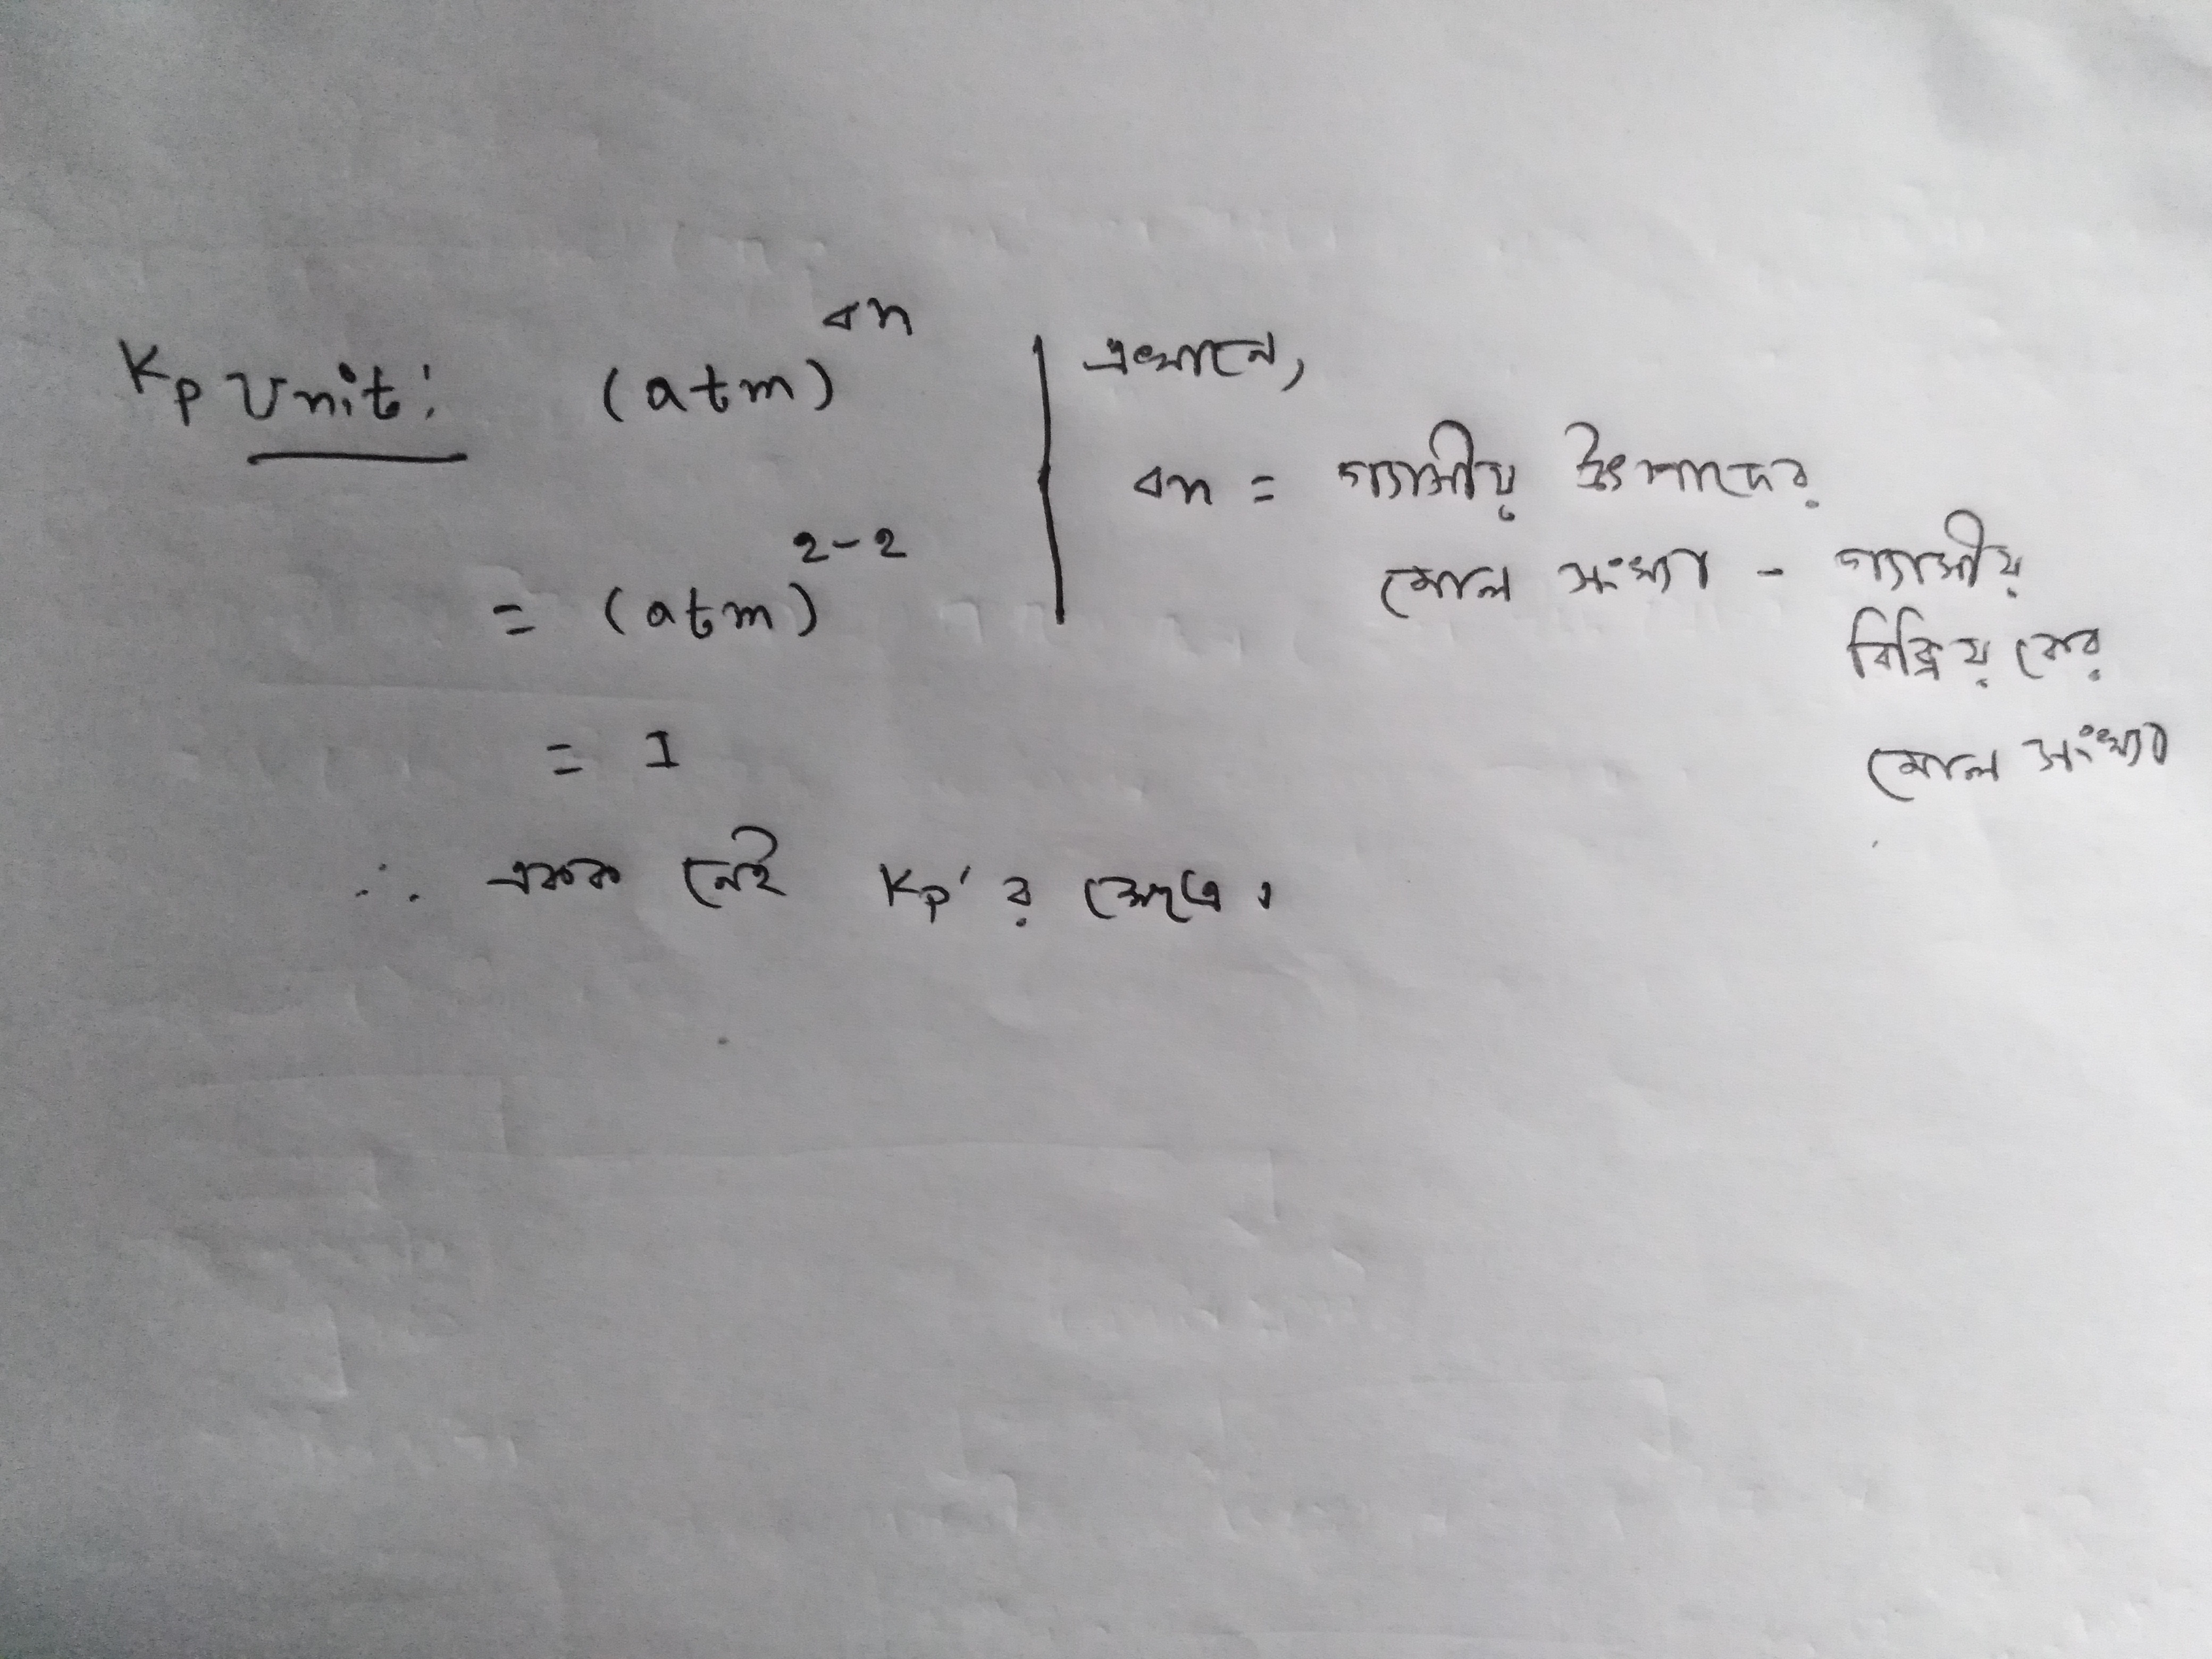 Kp Unit: (atm)^Δn
= (atm)^2-2
= 1
∴ একক নেই Kp'র ক্ষেত্রে।
এখানে,
Δn = গ্যাসীয় উৎপাদের
মোল সংখ্যা - গ্যাসীয়
বিক্রিয়কের
মোল সংখ্যা